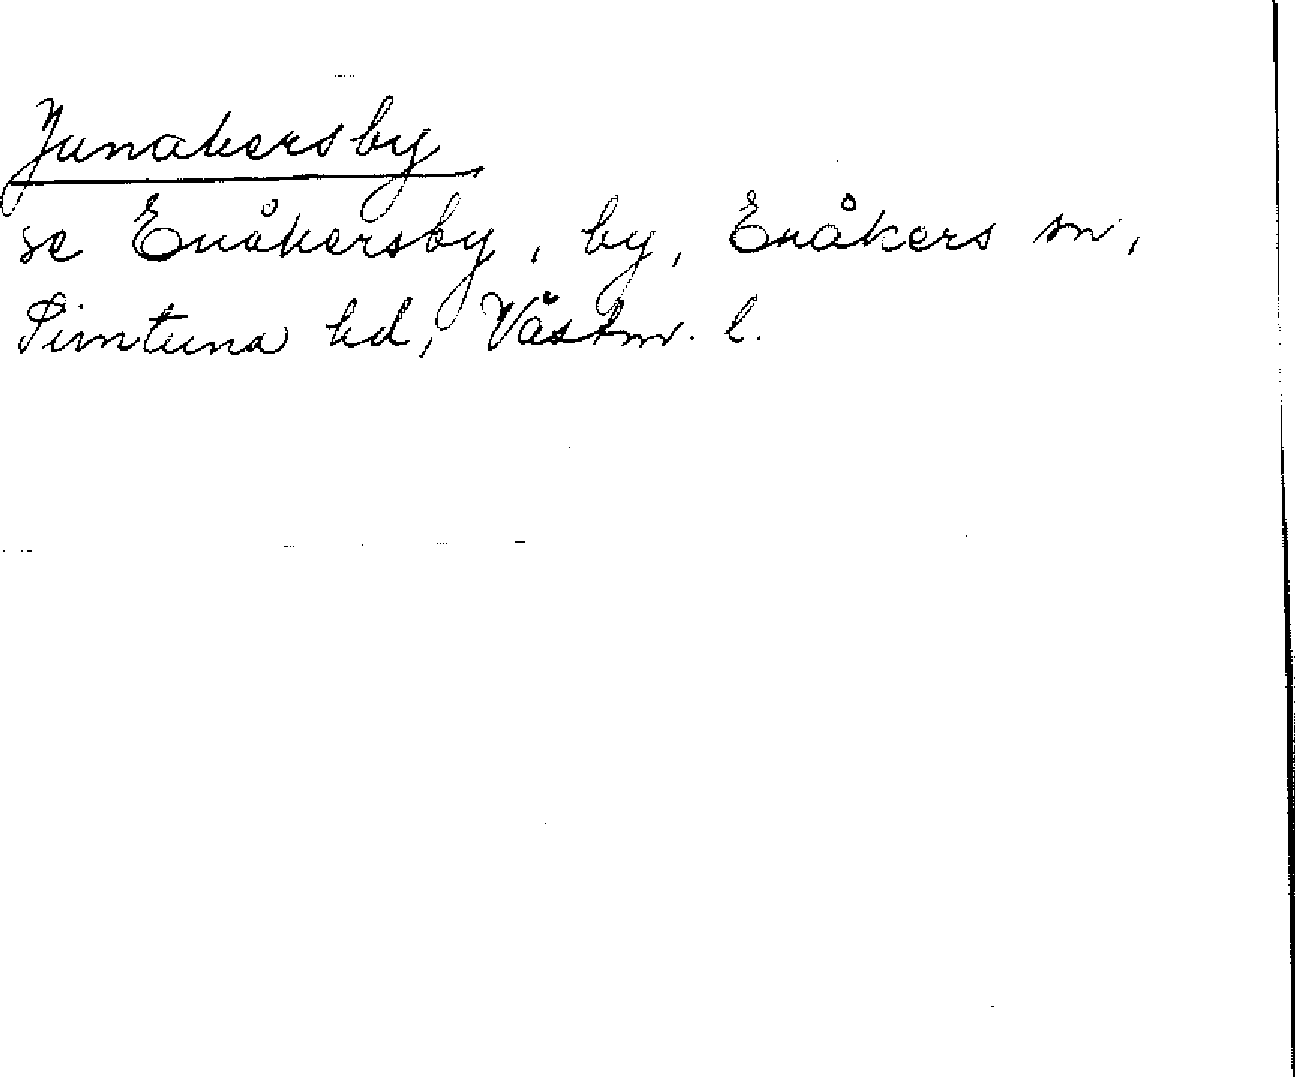 Junakersby
se Enåkersby, by, Enåkers sn,
Simtuna hd, Västm. l.